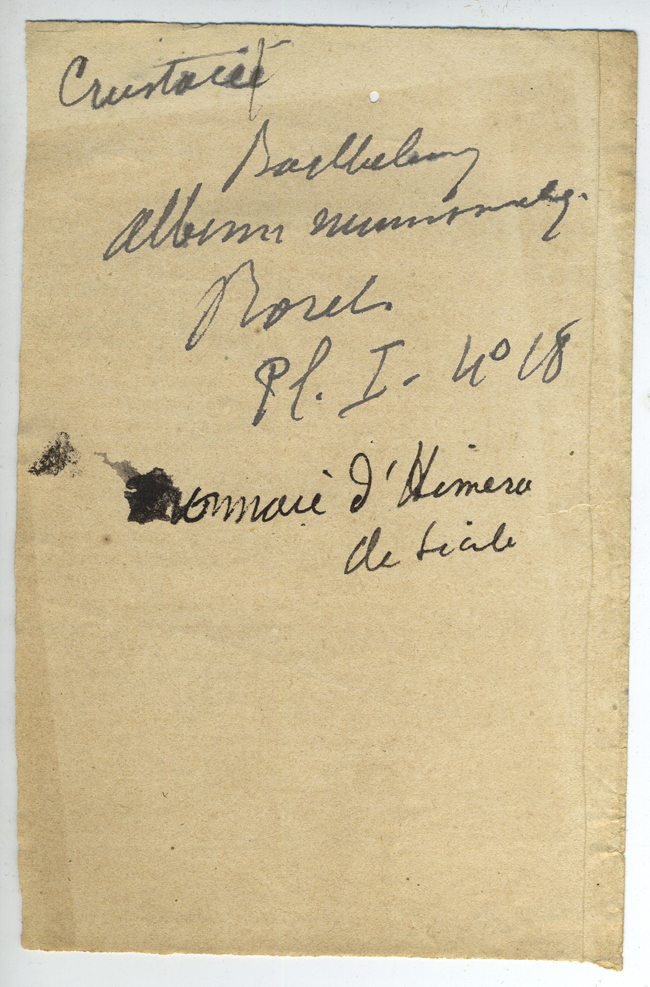 Crustacé
Barthelemy
Album numismatiq.
Roret.
Pl. I. nº 18
monnaie d'Himera
de Sicile